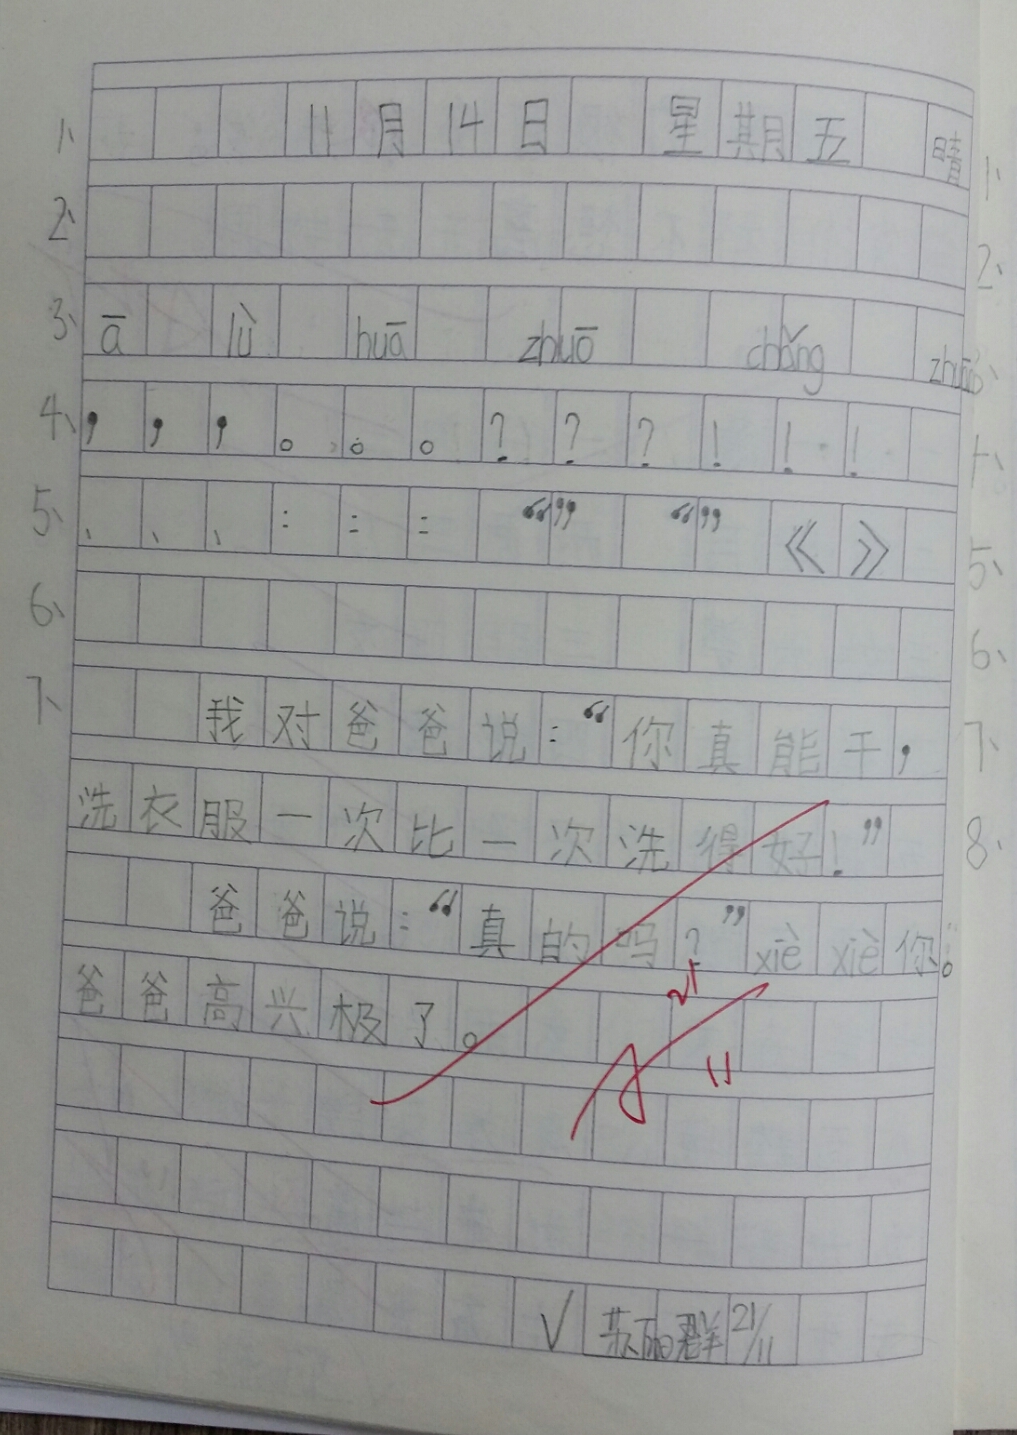 1、 11月14日 星期五 晴
2、
3、 ā lǜ huā zhuō chǎng
4、 , , , 。 。 。 ? ? ? ! ! !
5、 、 、 、 : : : “” “” 《》
6、
7、 我对爸爸说:“你真能干,
洗衣服一次比一次洗得好!”
爸爸说:“真的吗?”xiè xiè 你。
爸爸高兴极了。
√ 群 21/11
1、
2、
5、
6、
7、
8、